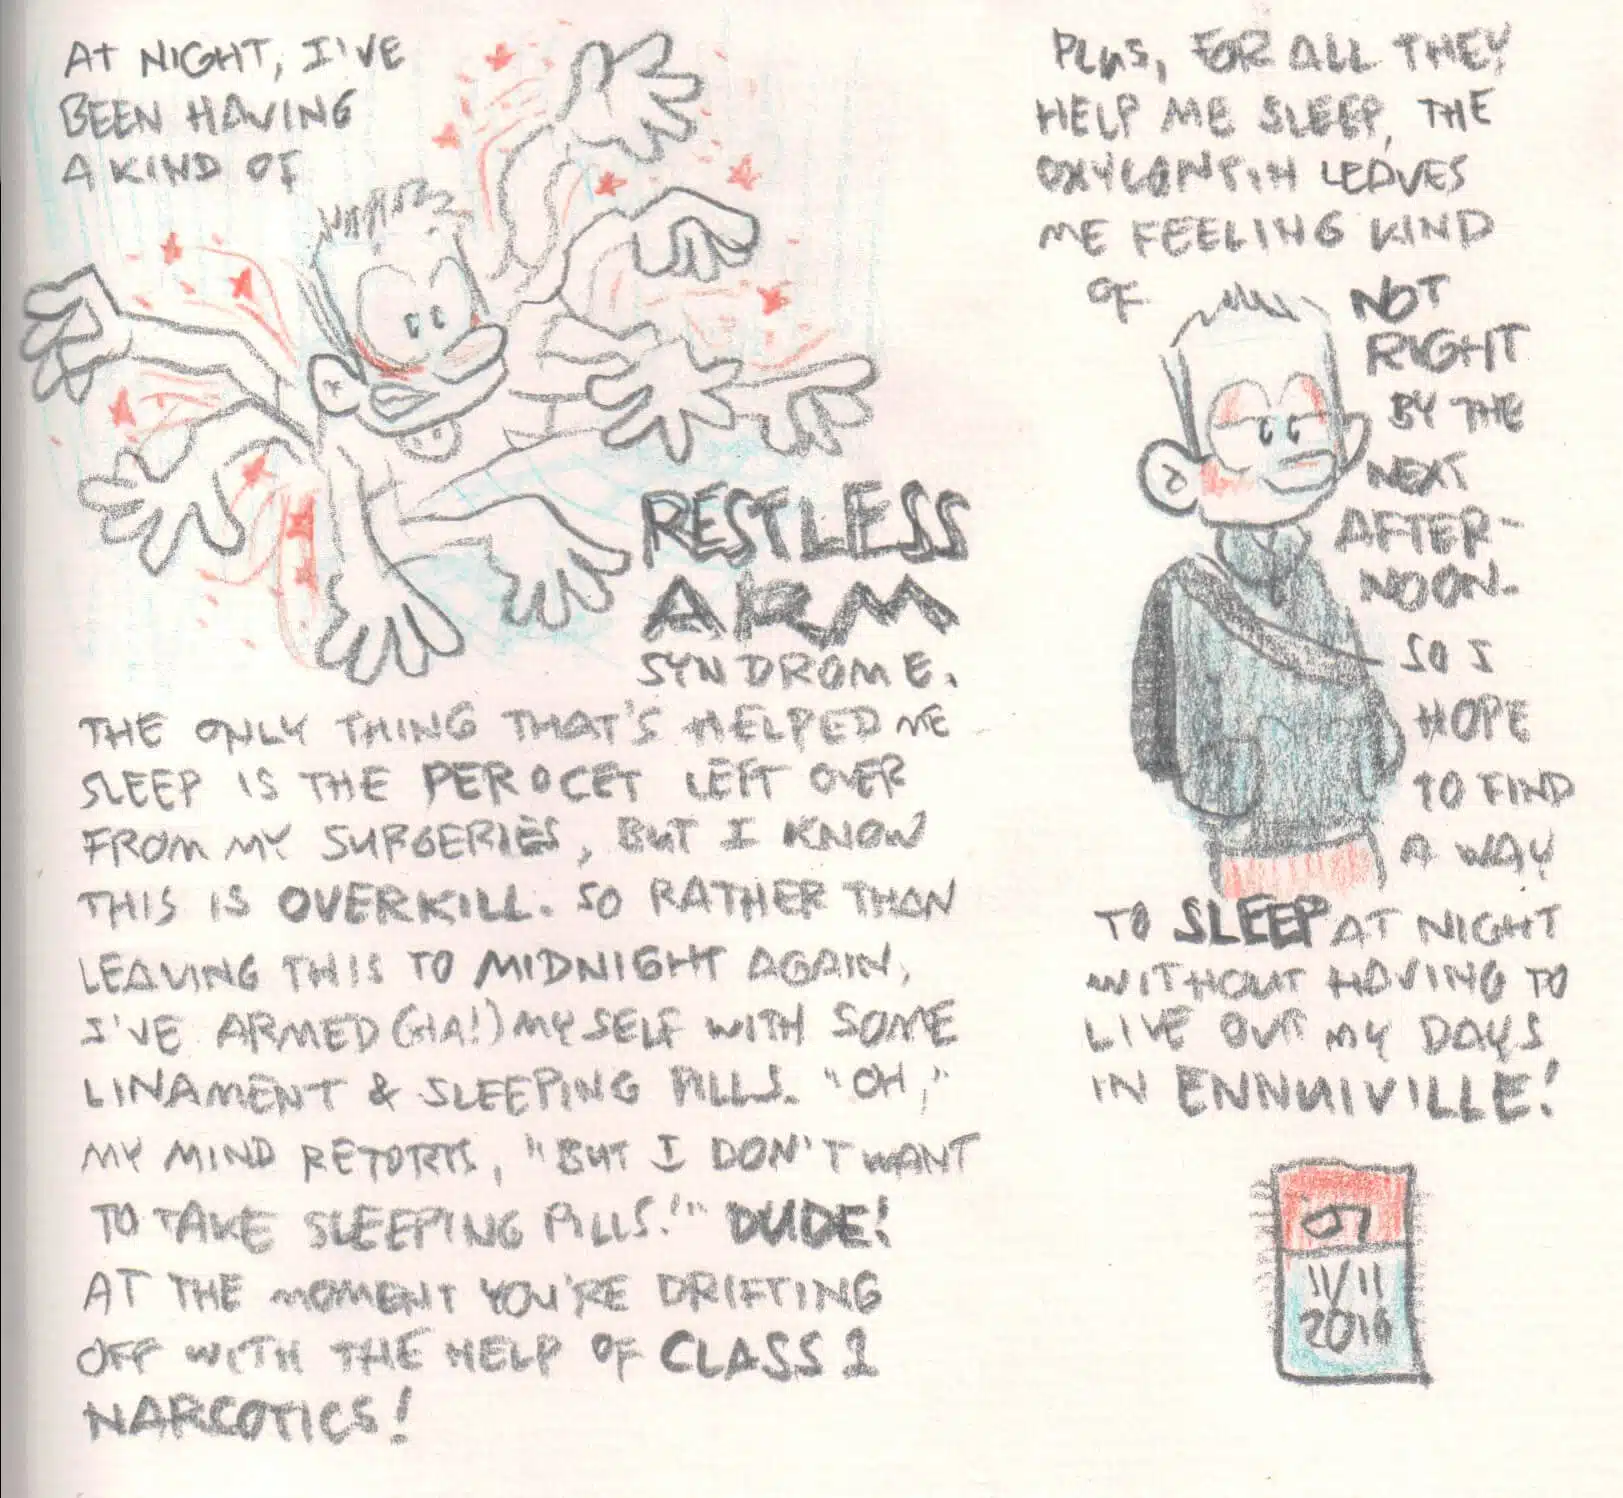 AT NIGHT, I'VE
BEEN HAVING
A KIND OF
RESTLESS
ARM
SYNDROME.
THE ONLY THING THAT'S HELPED ME
SLEEP IS THE PEROCET LEFT OVER
FROM MY SURGERIES, BUT I KNOW
THIS IS OVERKILL. SO RATHER THAN
LEAVING THIS TO MIDNIGHT AGAIN,
I'VE ARMED (HA!) MYSELF WITH SOME
LINAMENT & SLEEPING PILLS. "OH,"
MY MIND RETORTS, "BUT I DON'T WANT
TO TAKE SLEEPING PILLS!" DUDE!
AT THE MOMENT YOU'RE DRIFTING
OFF WITH THE HELP OF CLASS 1
NARCOTICS!
PLUS, FOR ALL THEY
HELP ME SLEEP, THE
OXYCONTIN LEAVES
ME FEELING KIND
OF NOT
RIGHT
BY THE
NEXT
AFTER-
NOON.
SO I
HOPE
TO FIND
A WAY
TO SLEEP AT NIGHT
WITHOUT HAVING TO
LIVE OUT MY DAYS
IN ENNUIVILLE!
11/11
2016